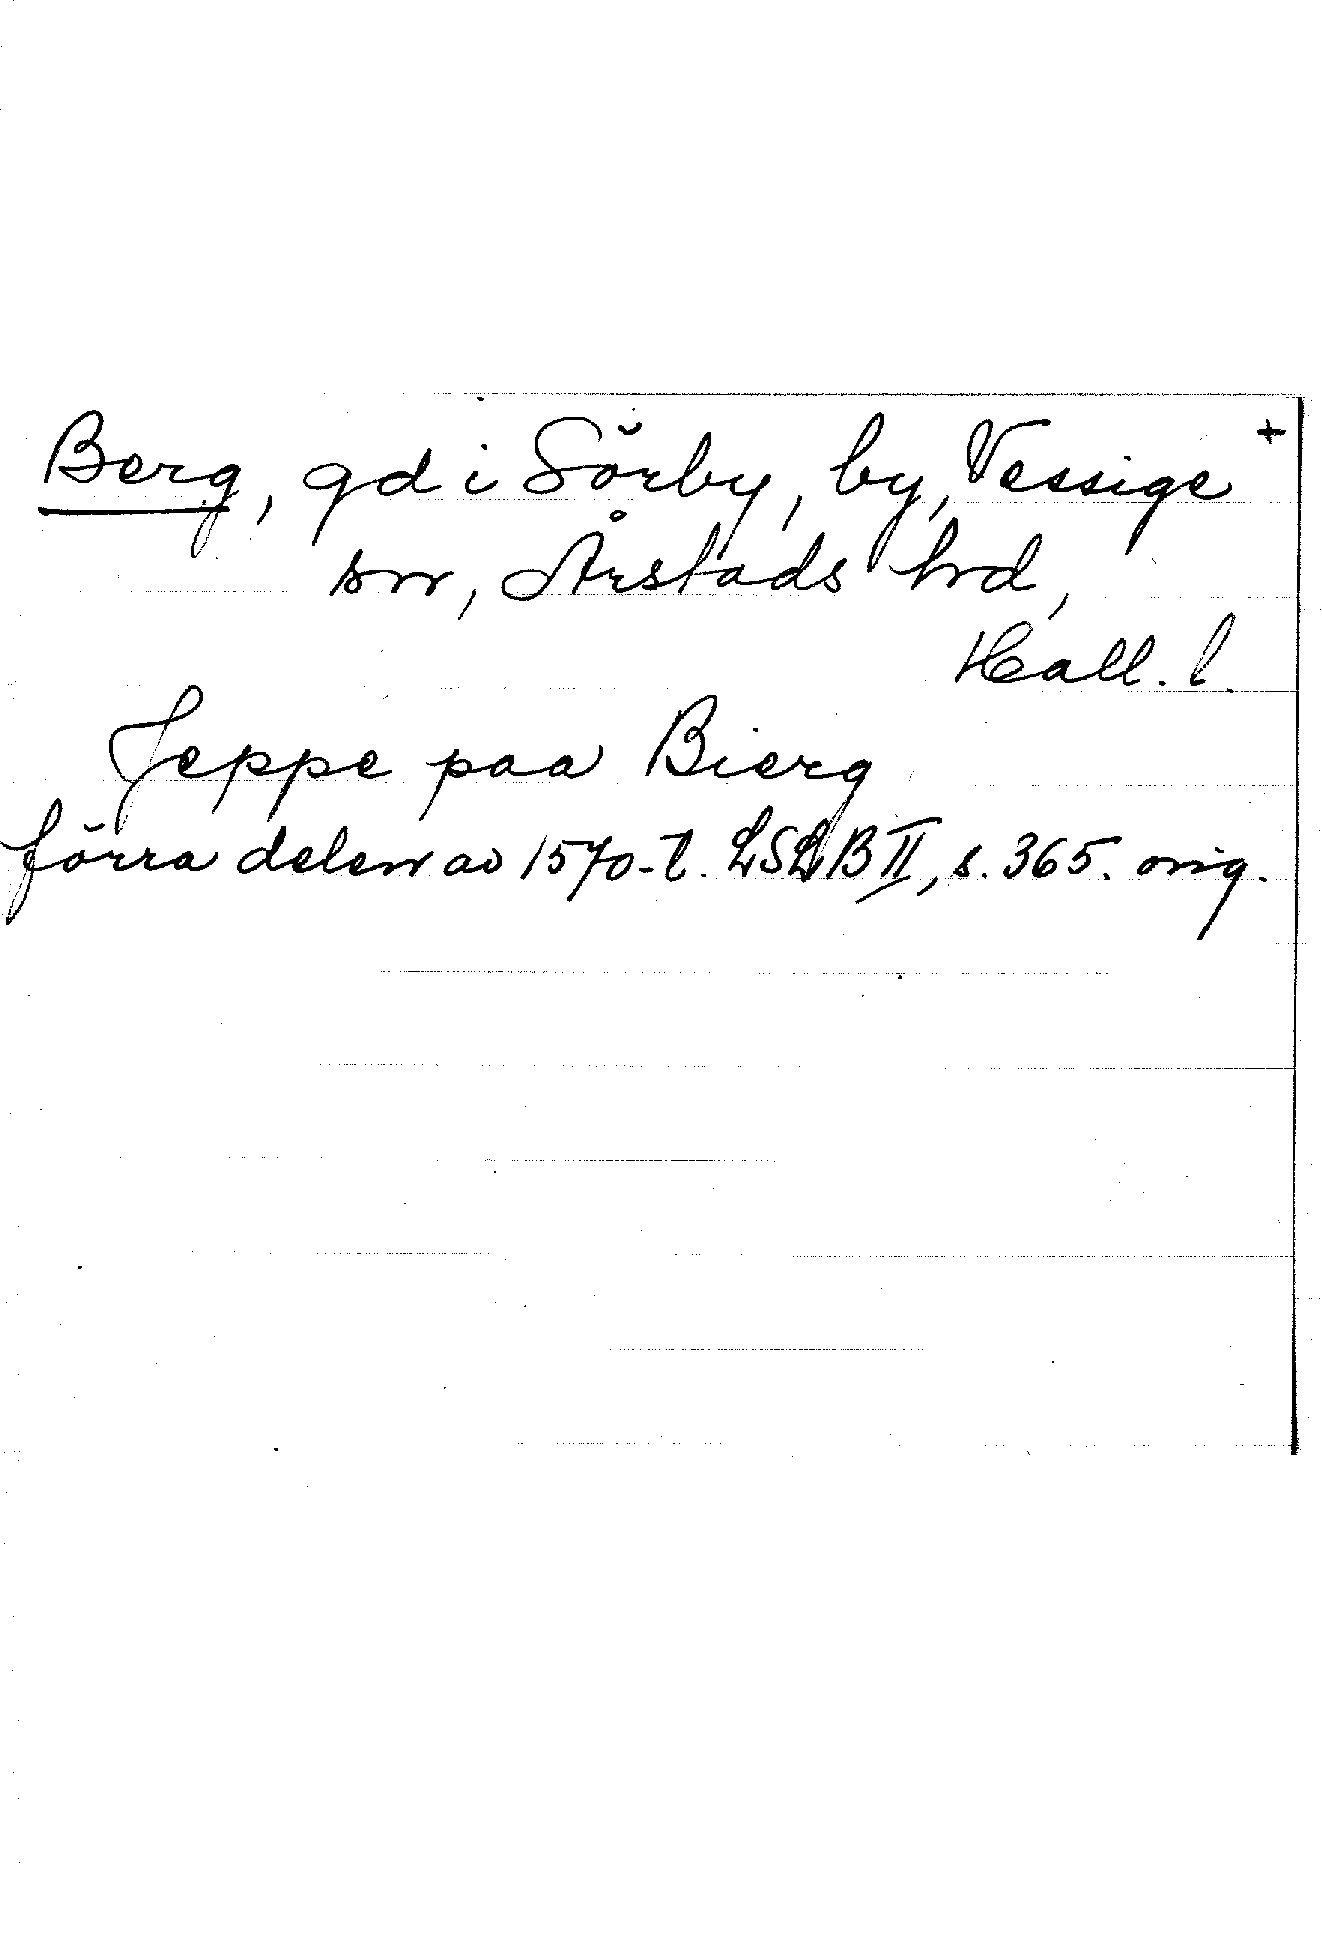 Berg, gd i Sörby, by, Vessige +
sn, Årstads hd,
Hall. l.
Jeppe paa Bierg
förra delen av 1570-t. LSLB II, s. 365. orig.